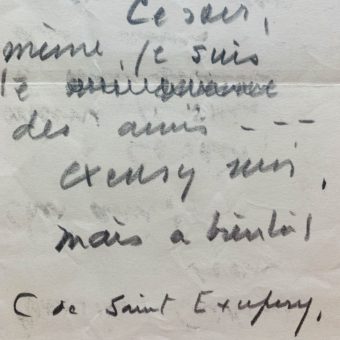 Ce soir,
même, je suis
le
des amis ---
excusez moi,
mais a bientôt
C de Saint Exupery,